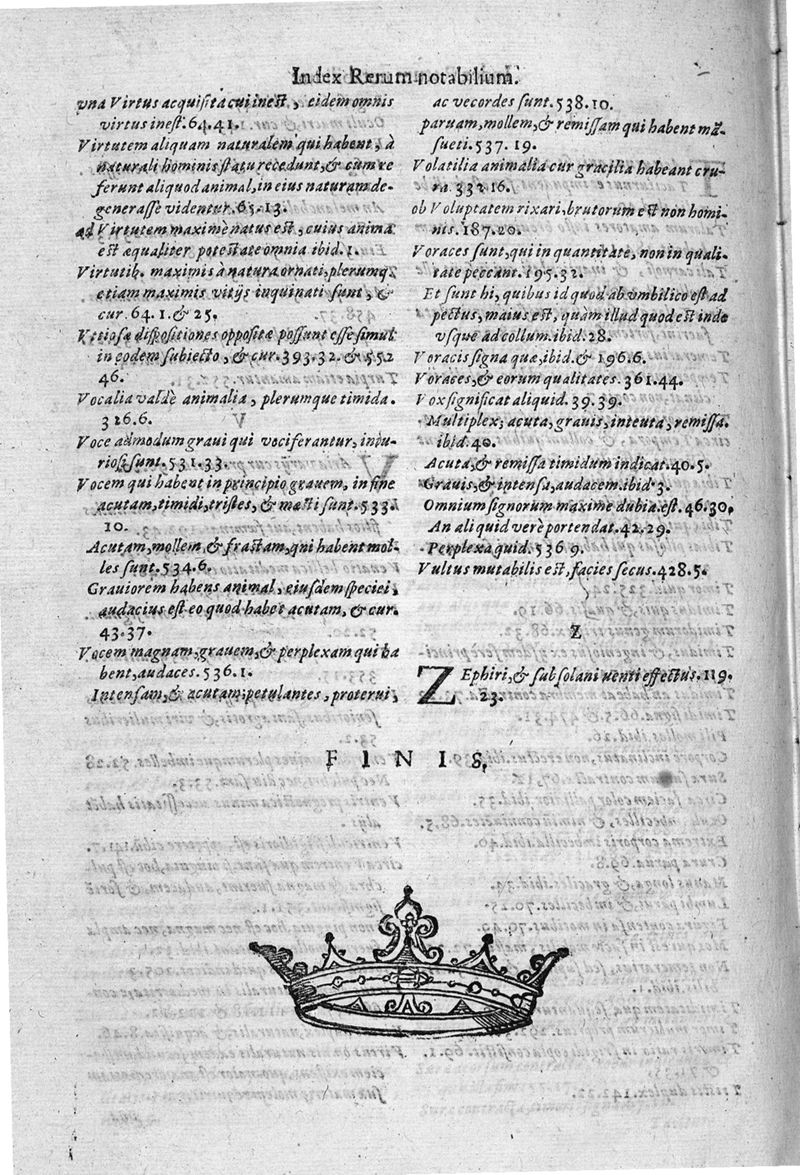 Index Rerum notabilium.
vna Virtus acquisita cui inest, eidem omnis
virtus inest. 64.41.
Virtutem aliquam naturalem qui habent, à
naturali hominis statu recedunt, & cum re
ferunt aliquod animal, in eius naturam de-
generasse videntur. 65.13.
ad Virtutem maximè natus est, cuius anima
est æqualiter potestate omnia ibid. 1.
Virtutib. maximis à natura ornati, plerumq;
etiam maximis vitijs inquinati sunt, &
cur. 64.1. & 25.
Vitiosæ dispositiones oppositæ possunt esse simul
in eodem subiecto, & cur. 393.32. & 552
46.
Vocalia valdè animalia, plerumque timida.
326.6.
Voce admodum graui qui vociferantur, iniu-
riosi sunt. 531.33.
Vocem qui habent in principio grauem, in fine
acutam, timidi, tristes, & mæsti sunt. 533.
10.
Acutam, mollem & fractam, qui habent mol-
les sunt. 534.6.
Grauiorem habens animal, eiusdem speciei,
audacius est eo quod habet acutam, & cur.
43.37.
Vocem magnam, grauem, & perplexam qui ha
bent, audaces. 536.1.
Intensam, & acutam, petulantes, proterui,
ac vecordes sunt. 538.10.
paruam, mollem, & remissam qui habent mã
sueti. 537.19.
Volatilia animalia cur gracilia habeant cru-
ra. 332 16.
ob Voluptatem rixari, brutorum est non homi-
nis. 187.20.
Voraces sunt, qui in quantitate, non in quali-
tate peccant. 195.32.
Et sunt hi, quibus id quod ab vmbilico est ad
pectus, maius est, quam illud quod est inde
vsque ad collum. ibid. 28.
Voracis signa quæ, ibid. & 196.6.
Voraces, & eorum qualitates. 361.44.
Vox significat aliquid. 39.39.
Multiplex; acuta, grauis, intenta, remissa.
ibid. 40.
Acuta, & remissa timidum indicat. 40.5.
Grauis, & intensa, audacem. ibid. 3.
Omnium signorum maxime dubia est. 46.30.
An aliquid verè portendat. 42.29.
Perplexa quid. 536 9.
Vultus mutabilis est, facies secus. 428.5.
Z
Zephiri, & subsolani venti effectus. 119.
23.
FINIS,